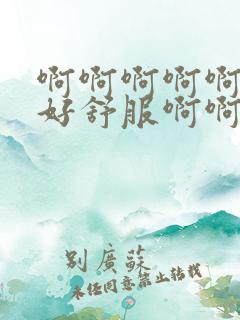 啊啊啊啊啊
好舒服啊啊
别廣蘇
未经同意禁止转载